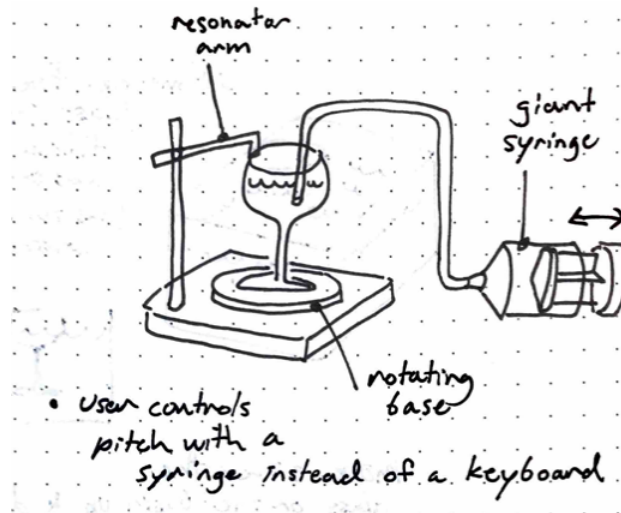 resonator
arm
giant
syringe
rotating
base
• user controls
pitch with a
syringe instead of a keyboard